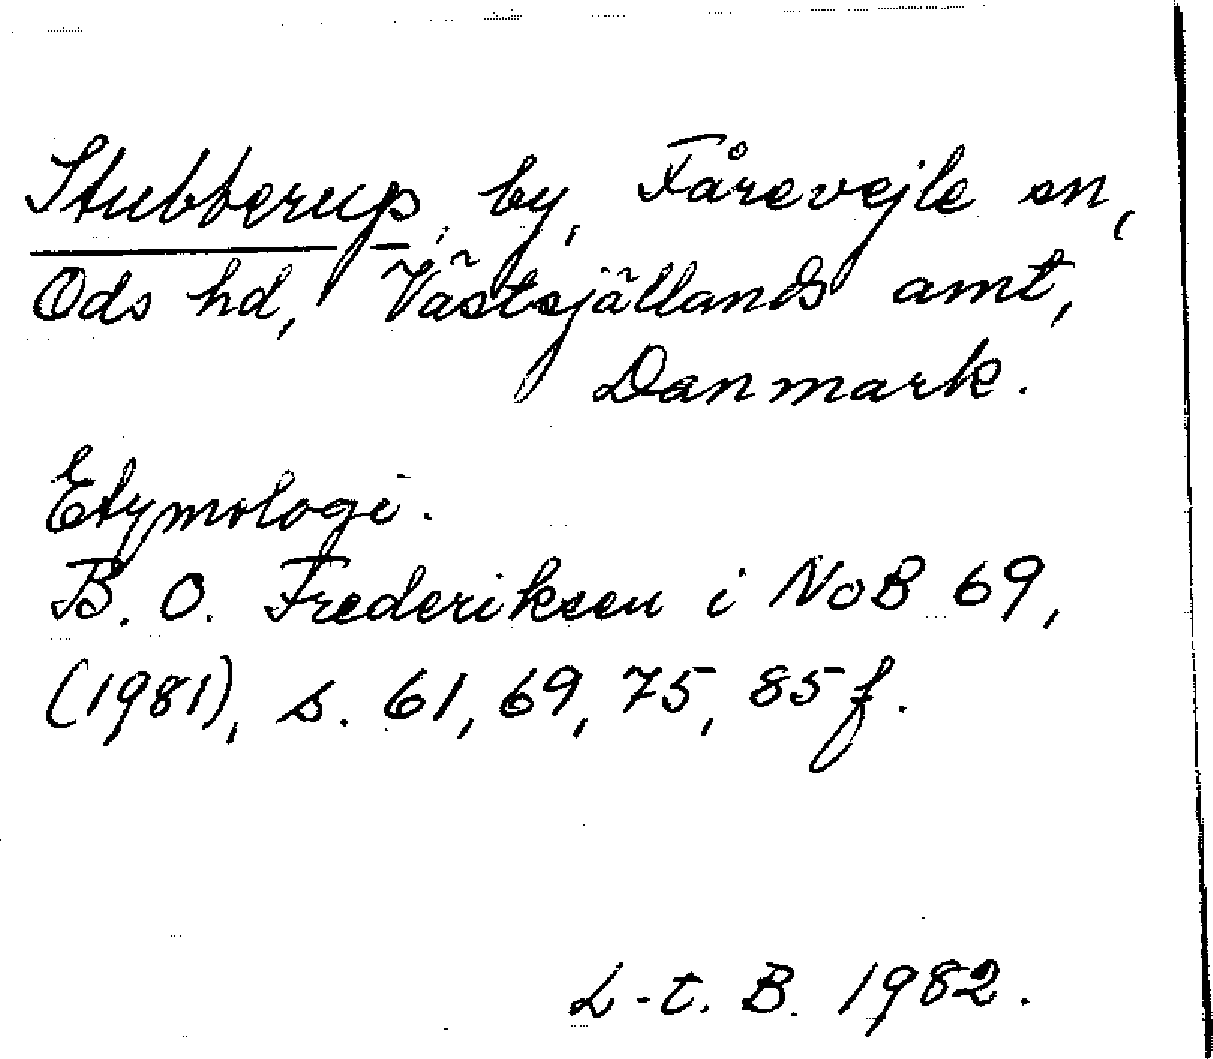 Stubberup, by, Fårevejle sn,
Ods hd, Västsjällands amt,
Danmark.
Etymologi.
B. O. Frederiksen i NoB 69,
(1981), s. 61, 69, 75, 85 f.
L-t. B. 1982.